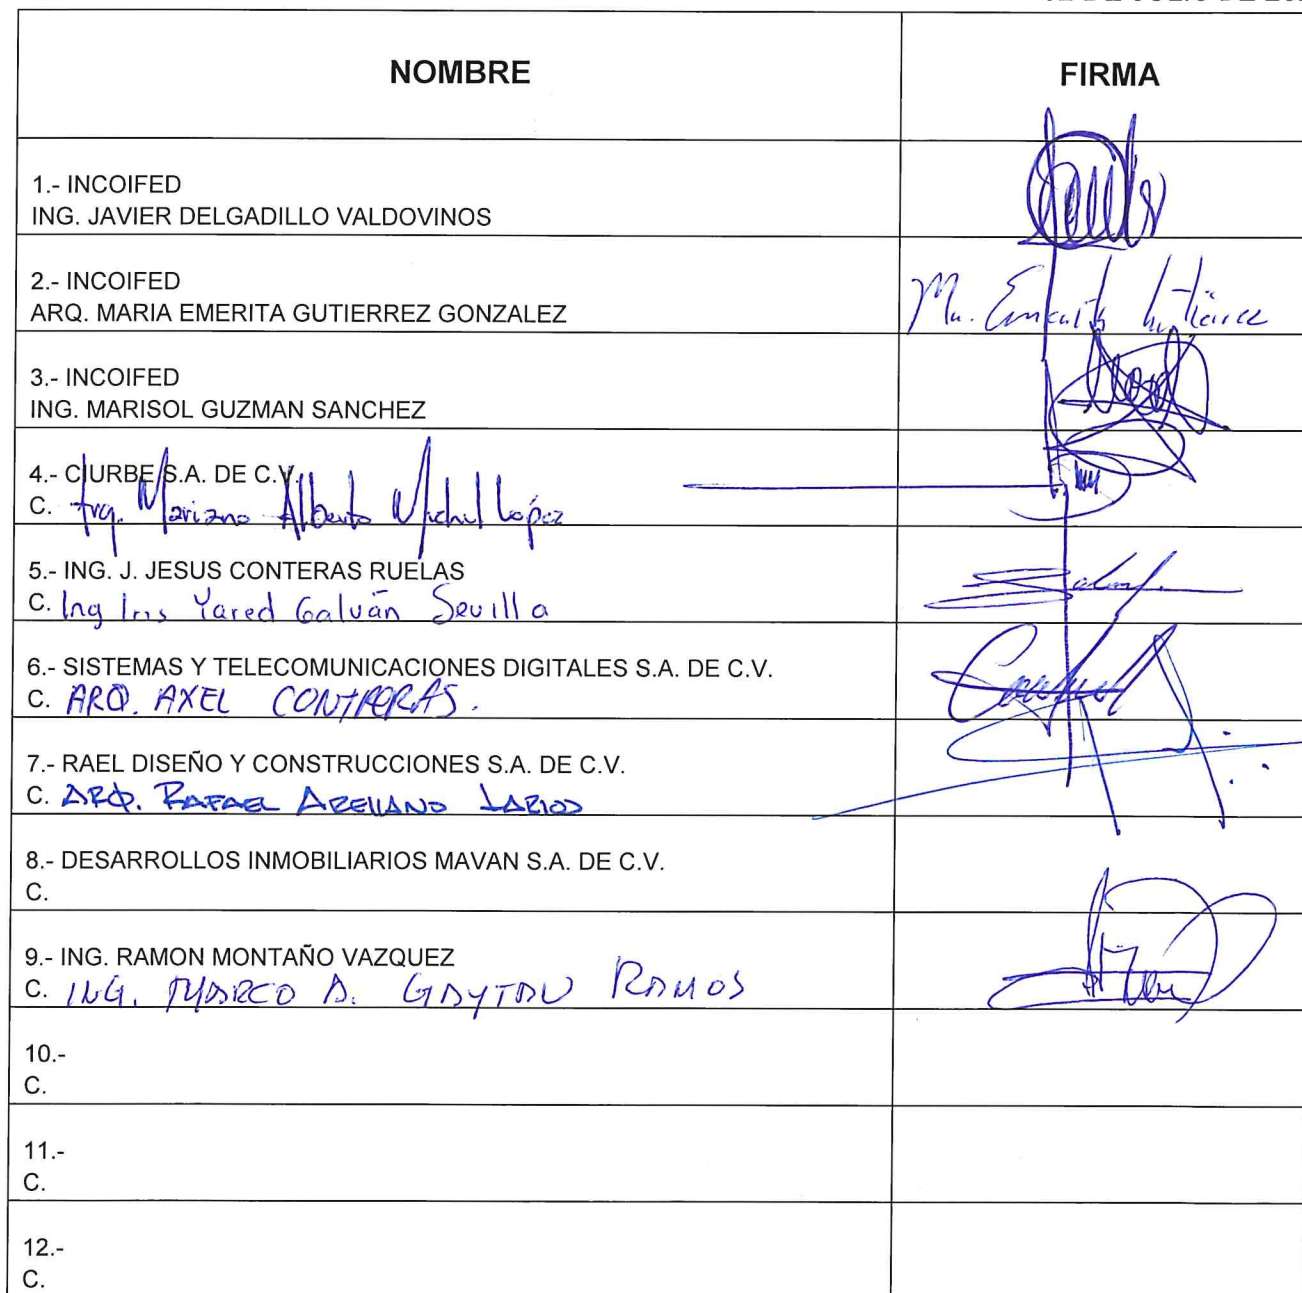 NOMBRE
FIRMA
1.- INCOIFED
ING. JAVIER DELGADILLO VALDOVINOS
2.- INCOIFED
ARQ. MARIA EMERITA GUTIERREZ GONZALEZ
Ma. Emerita Gutiérrez
3.- INCOIFED
ING. MARISOL GUZMAN SANCHEZ
4.- CIURBE S.A. DE C.V.
C. Arq. Mariano Alberto Michel López
5.- ING. J. JESUS CONTERAS RUELAS
C. Ing Iris Yared Galván Sevilla
6.- SISTEMAS Y TELECOMUNICACIONES DIGITALES S.A. DE C.V.
C. ARQ. AXEL CONTRERAS.
7.- RAEL DISEÑO Y CONSTRUCCIONES S.A. DE C.V.
C. ARQ. RAFAEL ARELLANO LARIOS
8.- DESARROLLOS INMOBILIARIOS MAVAN S.A. DE C.V.
C.
9.- ING. RAMON MONTAÑO VAZQUEZ
C. ING. MARCO A. GAYTAN RAMOS
10.-
C.
11.-
C.
12.-
C.